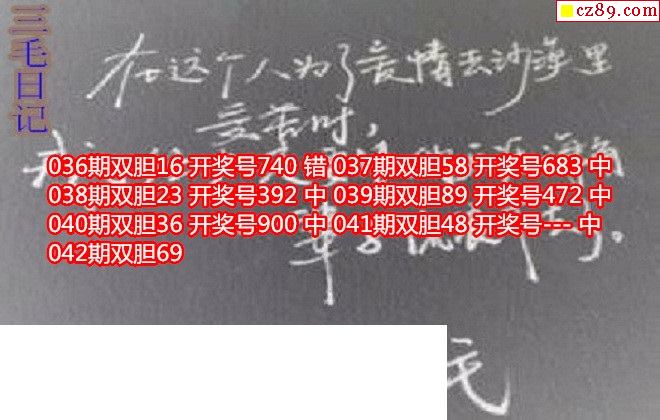 三毛日记
cz89.com
在这个人为了爱情去沙漠里
受苦时，
036期双胆16 开奖号740 错 037期双胆58 开奖号683 中
038期双胆23 开奖号392 中 039期双胆89 开奖号472 中
040期双胆36 开奖号900 中 041期双胆48 开奖号--- 中
042期双胆69
毛